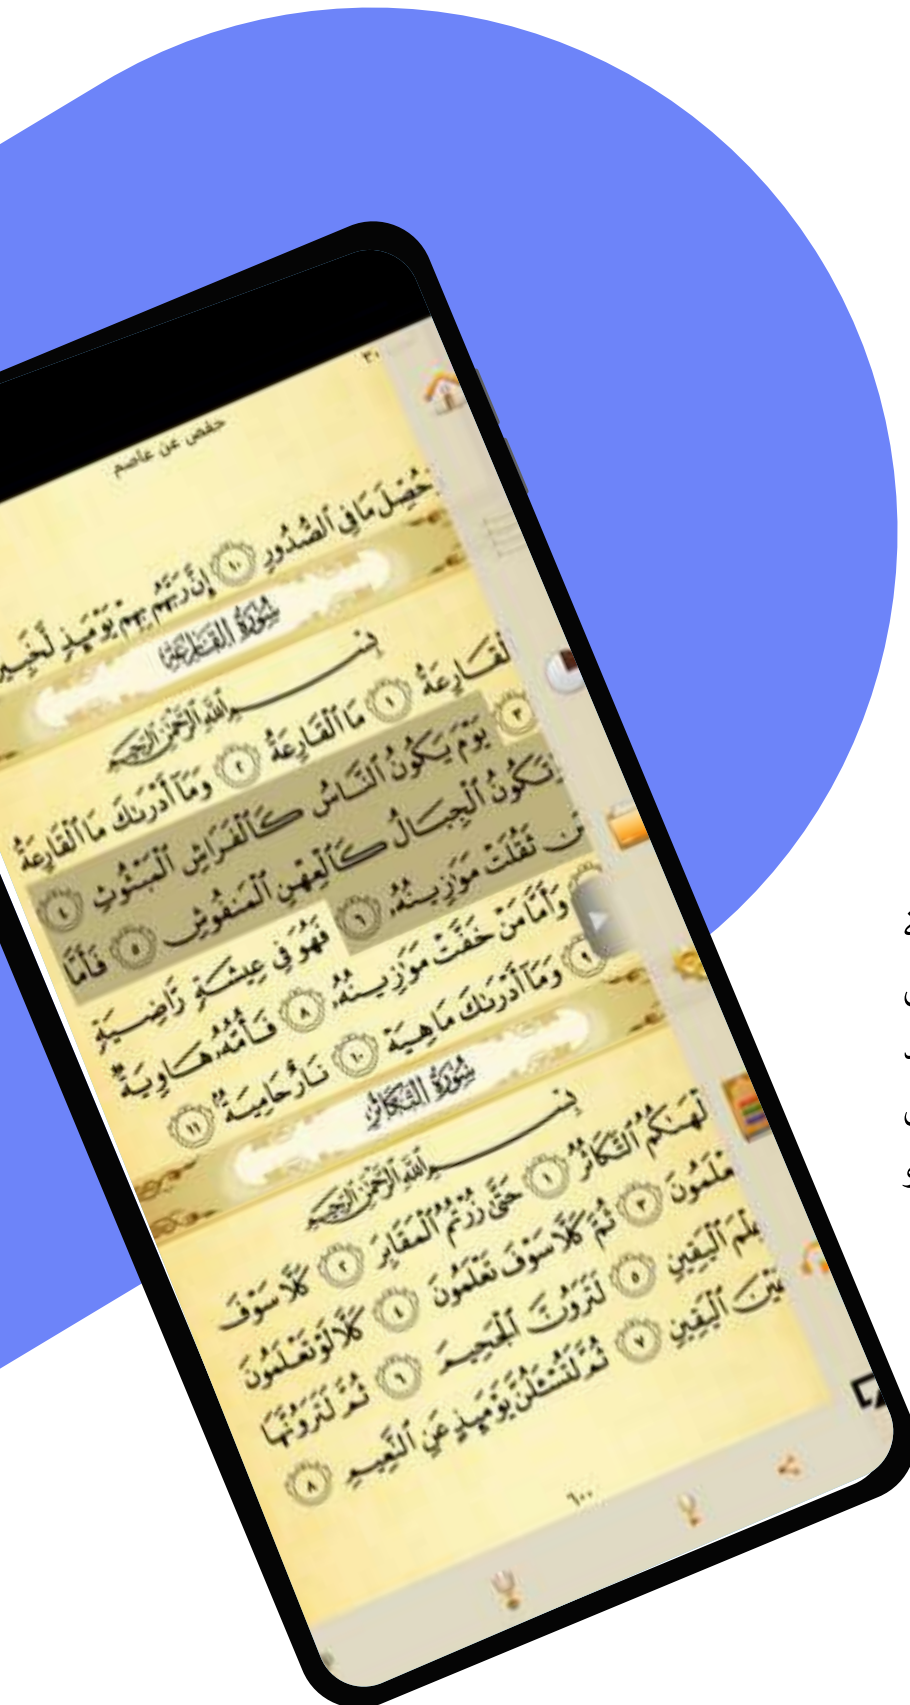 ٣٠
حفص عن عاصم
حُصِّلَ مَا فِى ٱلصُّدُورِ ١٠ إِنَّ رَبَّهُم بِهِمْ يَوْمَئِذٍ لَّخَبِيرٌ
سُورَةُ القَارِعَةِ
بِسْمِ ٱللَّهِ ٱلرَّحْمَٰنِ ٱلرَّحِيمِ
ٱلْقَارِعَةُ ١ مَا ٱلْقَارِعَةُ ٢ وَمَآ أَدْرَىٰكَ مَا ٱلْقَارِعَةُ
٣ يَوْمَ يَكُونُ ٱلنَّاسُ كَٱلْفَرَاشِ ٱلْمَبْثُوثِ ٤
وَتَكُونُ ٱلْجِبَالُ كَٱلْعِهْنِ ٱلْمَنفُوشِ ٥ فَأَمَّا
مَن ثَقُلَتْ مَوَٰزِينُهُۥ ٦ فَهُوَ فِى عِيشَةٍ رَّاضِيَةٍ
وَأَمَّا مَنْ خَفَّتْ مَوَٰزِينُهُۥ ٨ فَأُمُّهُۥ هَاوِيَةٌ
٩ وَمَآ أَدْرَىٰكَ مَا هِيَهْ ١٠ نَارٌ حَامِيَةٌۢ ١١
سُورَةُ التَّكَاثُرِ
بِسْمِ ٱللَّهِ ٱلرَّحْمَٰنِ ٱلرَّحِيمِ
أَلْهَىٰكُمُ ٱلتَّكَاثُرُ ١ حَتَّىٰ زُرْتُمُ ٱلْمَقَابِرَ ٢ كَلَّا سَوْفَ
تَعْلَمُونَ ٣ ثُمَّ كَلَّا سَوْفَ تَعْلَمُونَ ٤ كَلَّا لَوْ تَعْلَمُونَ
عِلْمَ ٱلْيَقِينِ ٥ لَتَرَوُنَّ ٱلْجَحِيمَ ٦ ثُمَّ لَتَرَوُنَّهَا
عَيْنَ ٱلْيَقِينِ ٧ ثُمَّ لَتُسْـَٔلُنَّ يَوْمَئِذٍ عَنِ ٱلنَّعِيمِ ٨
٦٠٠